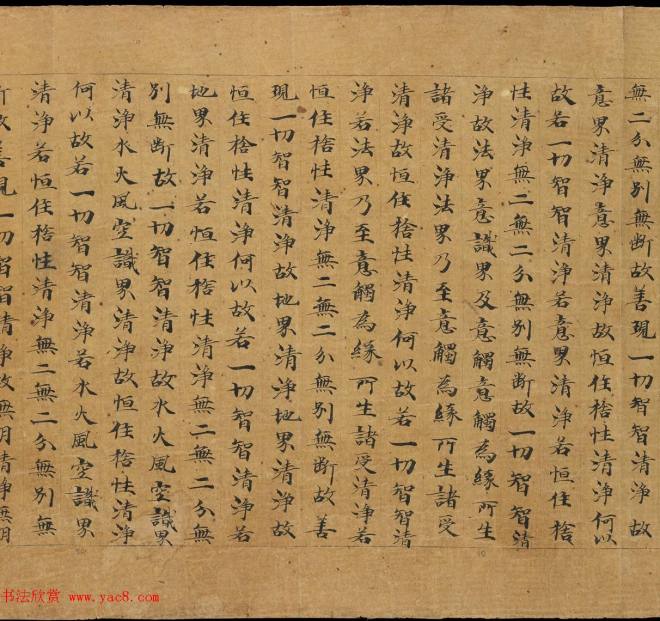 無二分無別無断故善現一切智智清淨故
意界清淨意界清淨故恒住捨性清淨何以
故若一切智智清淨若意界清淨若恒住捨
性清淨無二無二分無別無断故一切智智清
淨故法界意識界及意觸意觸為緣所生
諸受清淨法界乃至意觸為緣所生諸受
清淨故恒住捨性清淨何以故若一切智智清
淨若法界乃至意觸為緣所生諸受清淨若
恒住捨性清淨無二無二分無別無断故善
現一切智智清淨故地界清淨地界清淨故
恒住捨性清淨何以故若一切智智清淨若
地界清淨若恒住捨性清淨無二無二分無
別無断故一切智智清淨故水火風空識界
清淨水火風空識界清淨故恒住捨性清淨
何以故若一切智智清淨若水火風空識界
清淨若恒住捨性清淨無二無二分無別無
断故善現一切智智清淨故無明清淨無明
书法欣赏 www.yac8.com